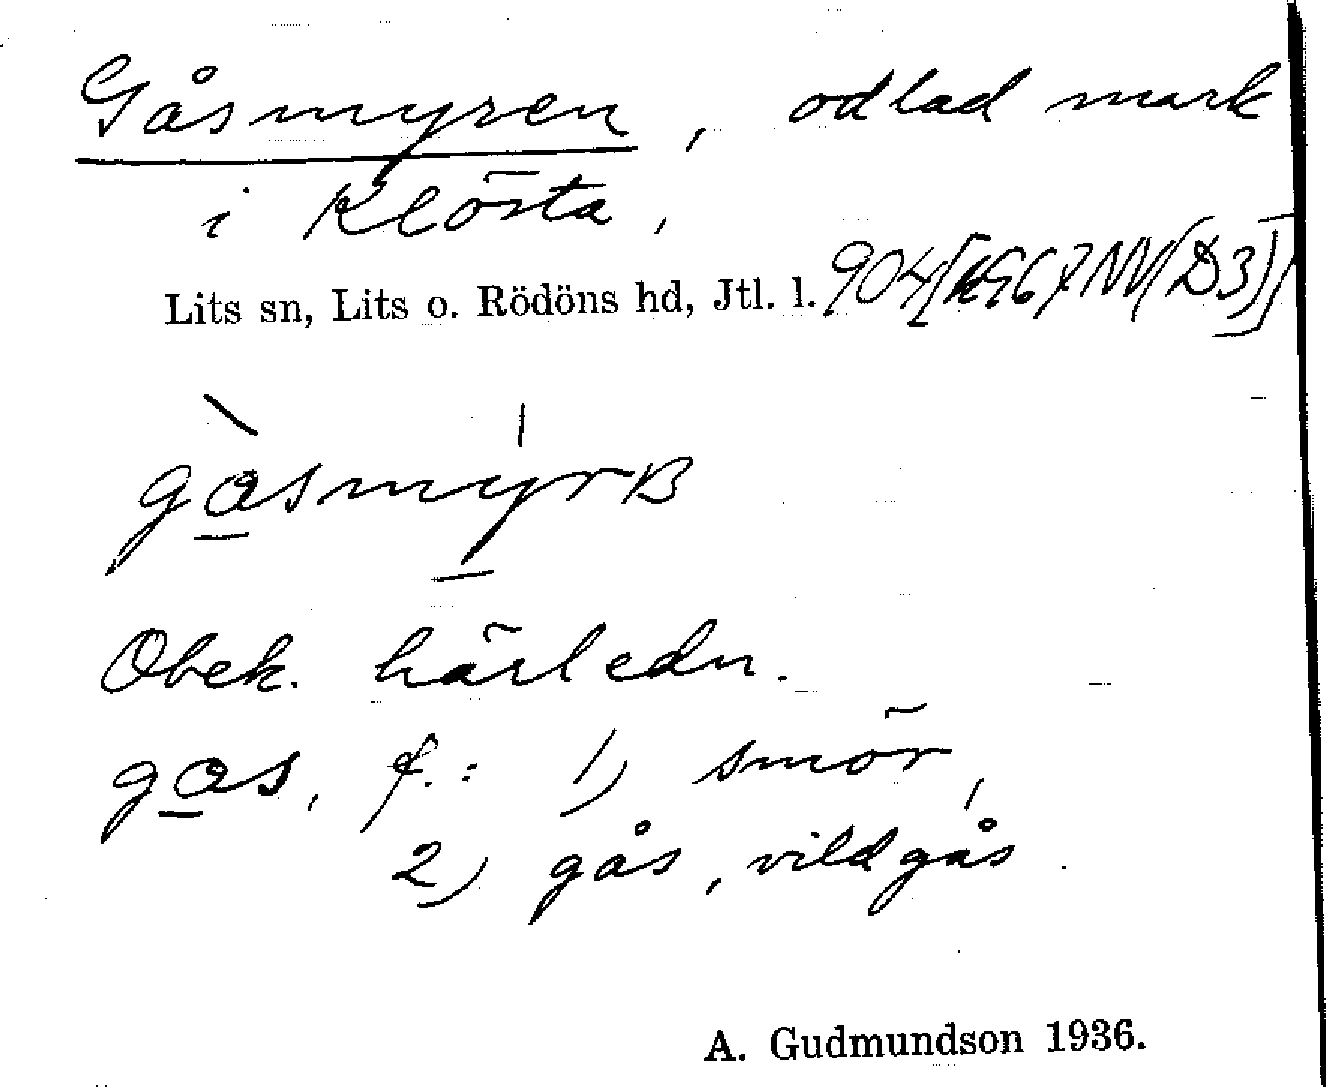 Gåsmyren, odlad mark
i Klösta,
Lits sn, Lits o. Rödöns hd, Jtl. l. 904
gasmyrʙ
Obek. härledn.
gas, f.: 1) smör,
2) gås, vildgås.
A. Gudmundson 1936.